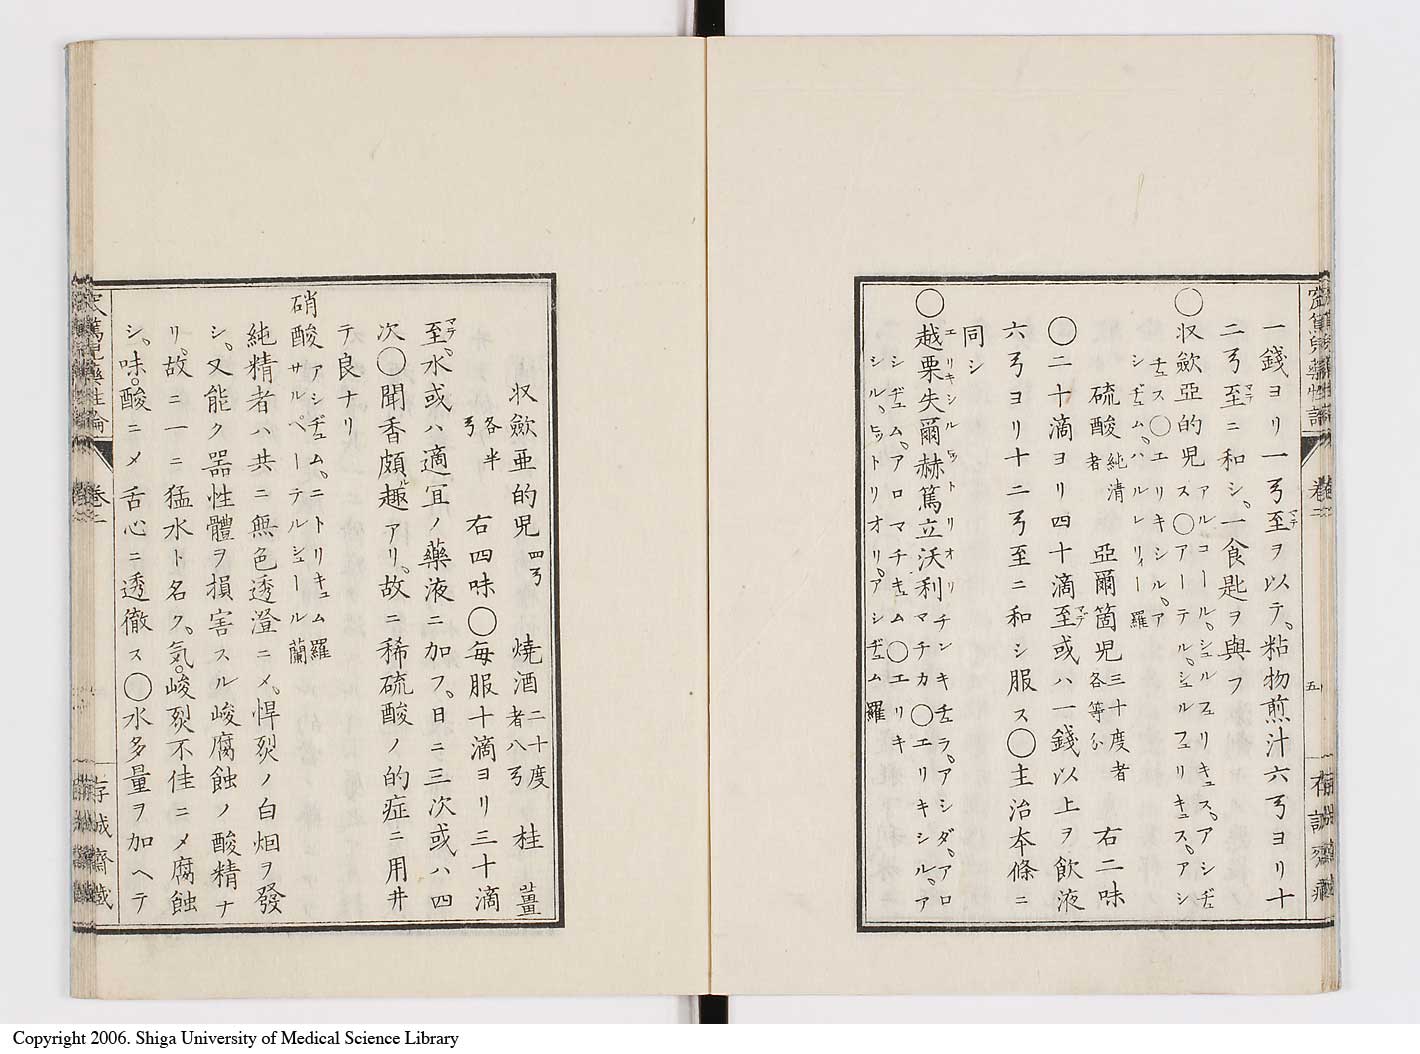 一錢ヨリ一㐧至マデヲ以テ。粘物煎汁六㐧ヨリ十
二㐧至マデニ和シ。一食匙ヲ與フ
〇収歛亞的児ス〇アルコール。シュルフリキュス。アシヂュ
チュス〇エリキシル。アーテル。シュルフュリキュス。アシ
シヂュム。ハルレリィー羅
硫酸純清者 亞爾箇児三十度者各等分 右二味
〇二十滴ヨリ四十滴至マデ或ハ一錢以上ヲ飲液
六㐧ヨリ十二㐧至ニ和シ服ス〇主治夲條ニ
同シ
〇越栗失爾赫篤立沃利エリキシルヒットリオリ チンキチュラ。アシダ。アロ
マチカ〇エリキシル。ア
シヂュム。アロマチキュム〇エリキ
シル。ヒットリオリ。アシヂュム羅
収歛亜的児四㐧 焼酒二十度者八㐧 桂 薑
各半㐧 右四味〇毎服十滴ヨリ三十滴
至マデ。水或ハ適冝ノ藥液ニ加フ。日ニ三次或ハ四
次〇聞香頗ル趣アリ。故ニ稀硫酸ノ的症ニ用井
テ良ナリ
硝酸 アシヂュム。ニトリキュム羅
サルペーテルシュール蘭
純精者ハ共ニ無色透澄ニメ。悍裂ノ白烟ヲ發
シ。又能ク器性體ヲ損害スル峻腐蝕ノ酸精ナ
リ。故ニ一ニ猛水ト名ク。気。峻裂不佳ニメ腐蝕
シ。味。酸ニメ舌心ニ透徹ス〇水多量ヲ加ヘテ
篤児藥性論
巻二
五
存
齋
Copyright 2006. Shiga University of Medical Science Library